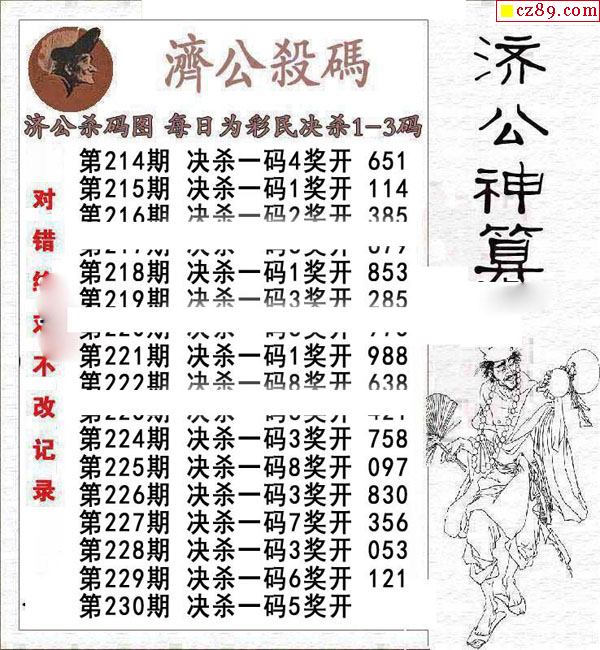 cz89.com
濟公殺碼
济公杀码图 每日为彩民决杀1-3码
第214期 决杀一码4奖开 651
第215期 决杀一码1奖开 114
第216期 决杀一码2奖开 385
第218期 决杀一码1奖开 853
第219期 决杀一码3奖开 285
第221期 决杀一码1奖开 988
第222期 决杀一码8奖开 638
第224期 决杀一码3奖开 758
第225期 决杀一码8奖开 097
第226期 决杀一码3奖开 830
第227期 决杀一码7奖开 356
第228期 决杀一码3奖开 053
第229期 决杀一码6奖开 121
第230期 决杀一码5奖开
对错绝对不改记录
济公神算